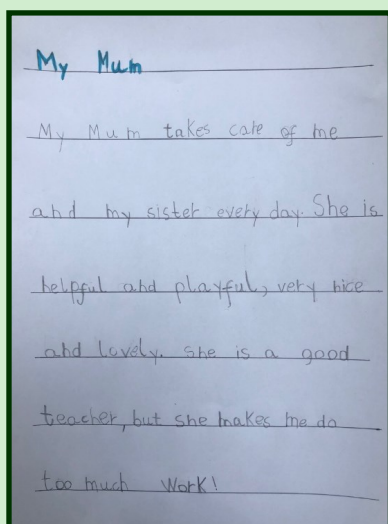 My Mum
My Mum takes care of me
and my sister every day. She is
helpful and playful, very nice
and lovely. She is a good
teacher, but she makes me do
too much work!